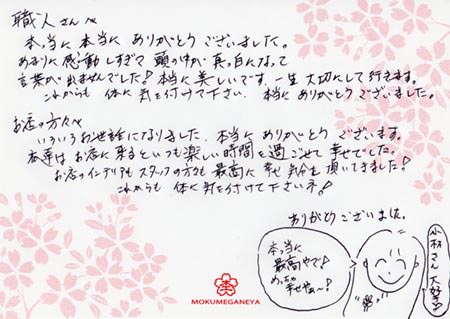 職人さんへ
本当に本当にありがとうございました。
あまりに感動しすぎて頭の中が真っ白になって
言葉が出ませんでした!本当に美しいです。一生大切にして行きます。
これからも体に気を付けて下さい。本当にありがとうございました。
お店の方々へ
いろいろお世話になりました。本当にありがとうございます。
私達はお店に来るといつも楽しい時間を過ごせて幸せでした。
お店のインテリアもスタッフの方も最高に幸せ気分を頂いてきました!
これからも体に気を付けて下さいネ!
ありがとうございました。
本当に
最高やで!
めっちゃ
幸せやぁ〜!
小林さん大好き♡
MOKUMEGANEYA